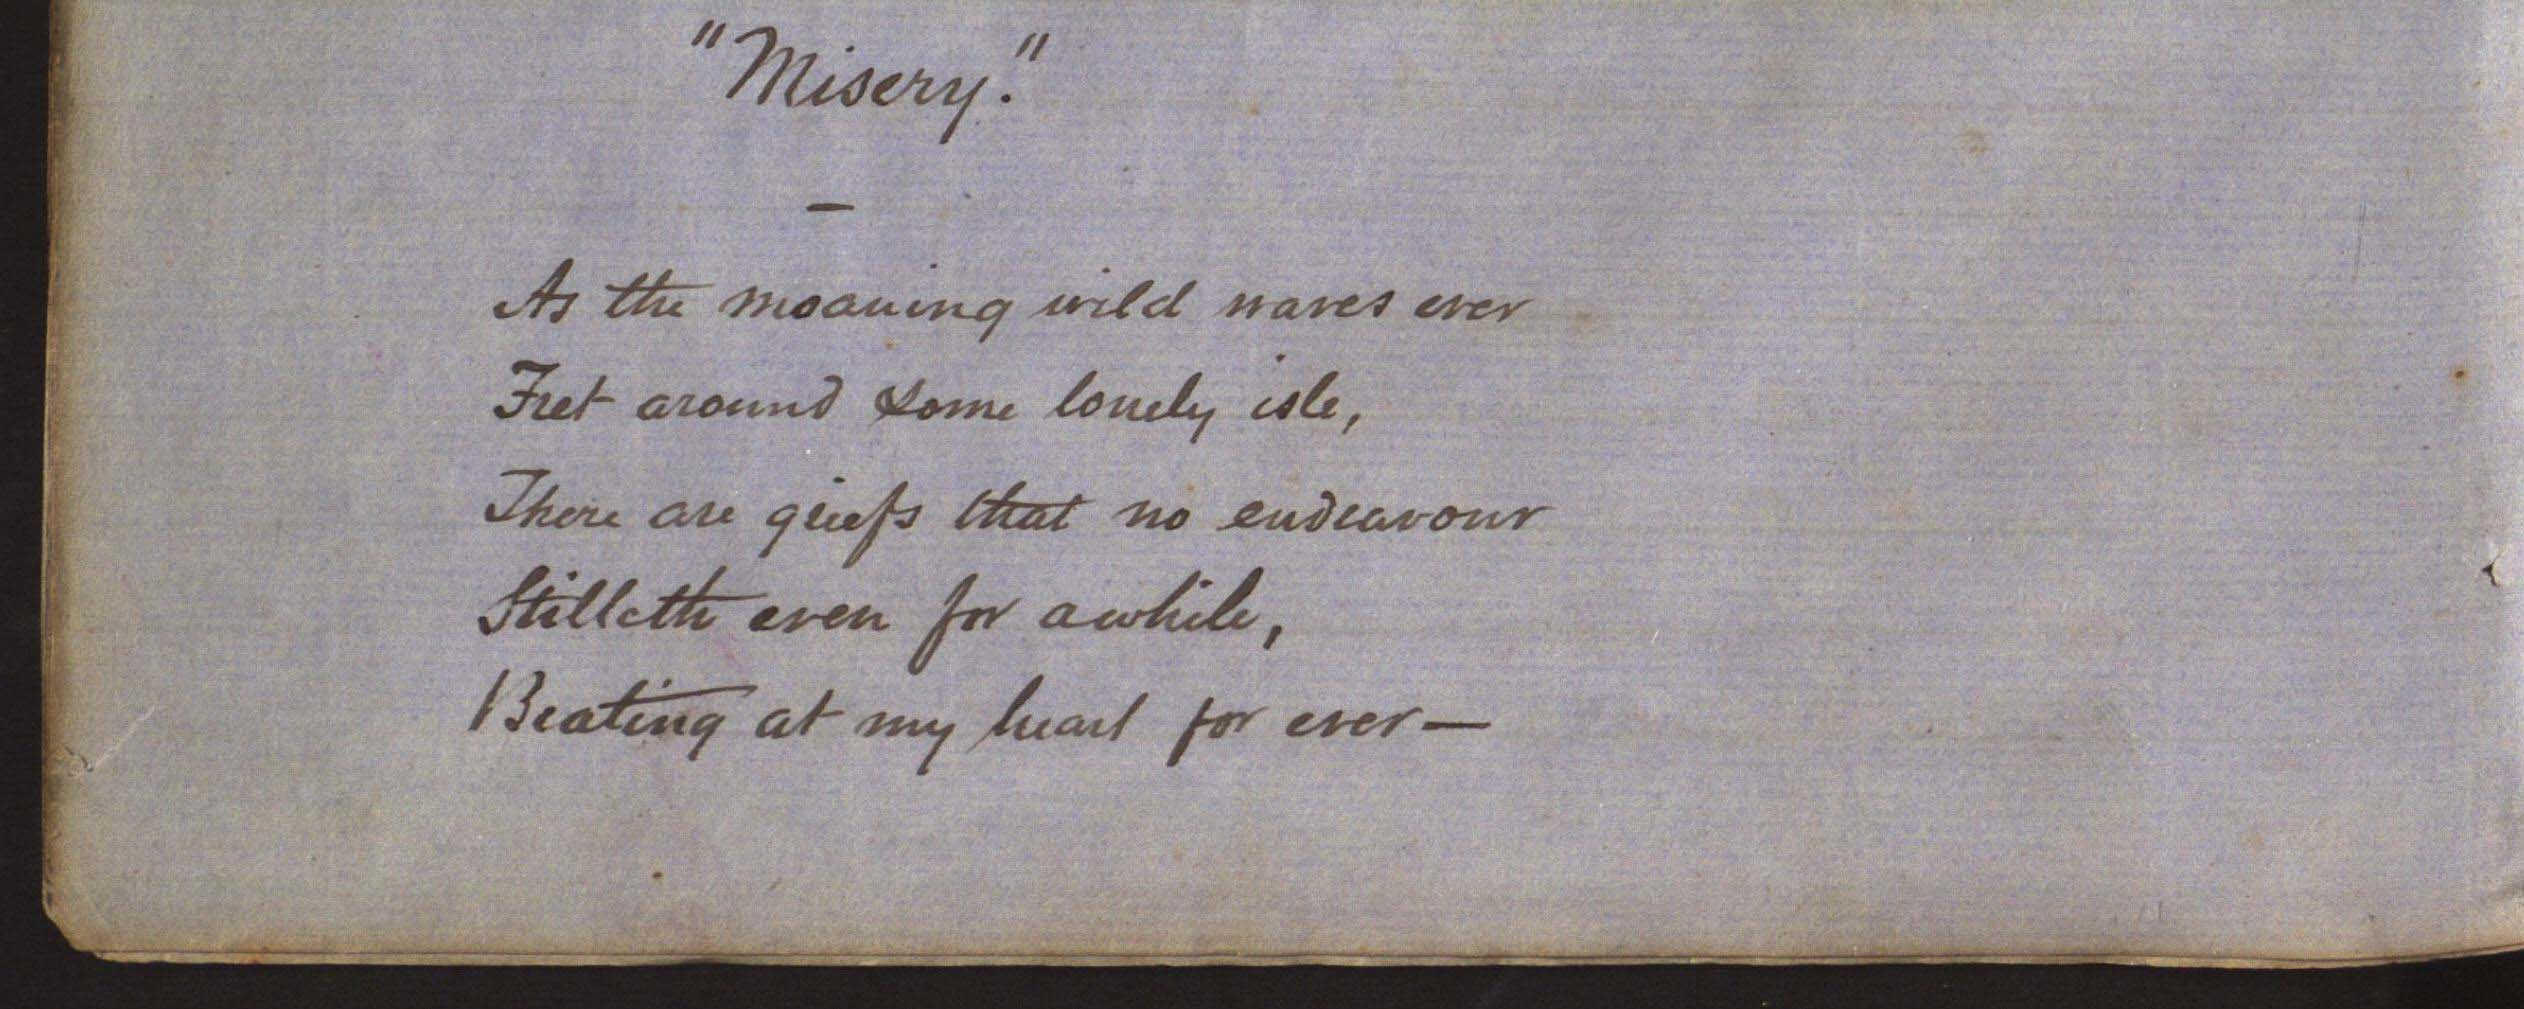 "Misery."
—
As the moaning wild waves ever
Fret around some lonely isle,
There are griefs that no endeavour
Stilleth even for awhile,
Beating at my heart for ever—